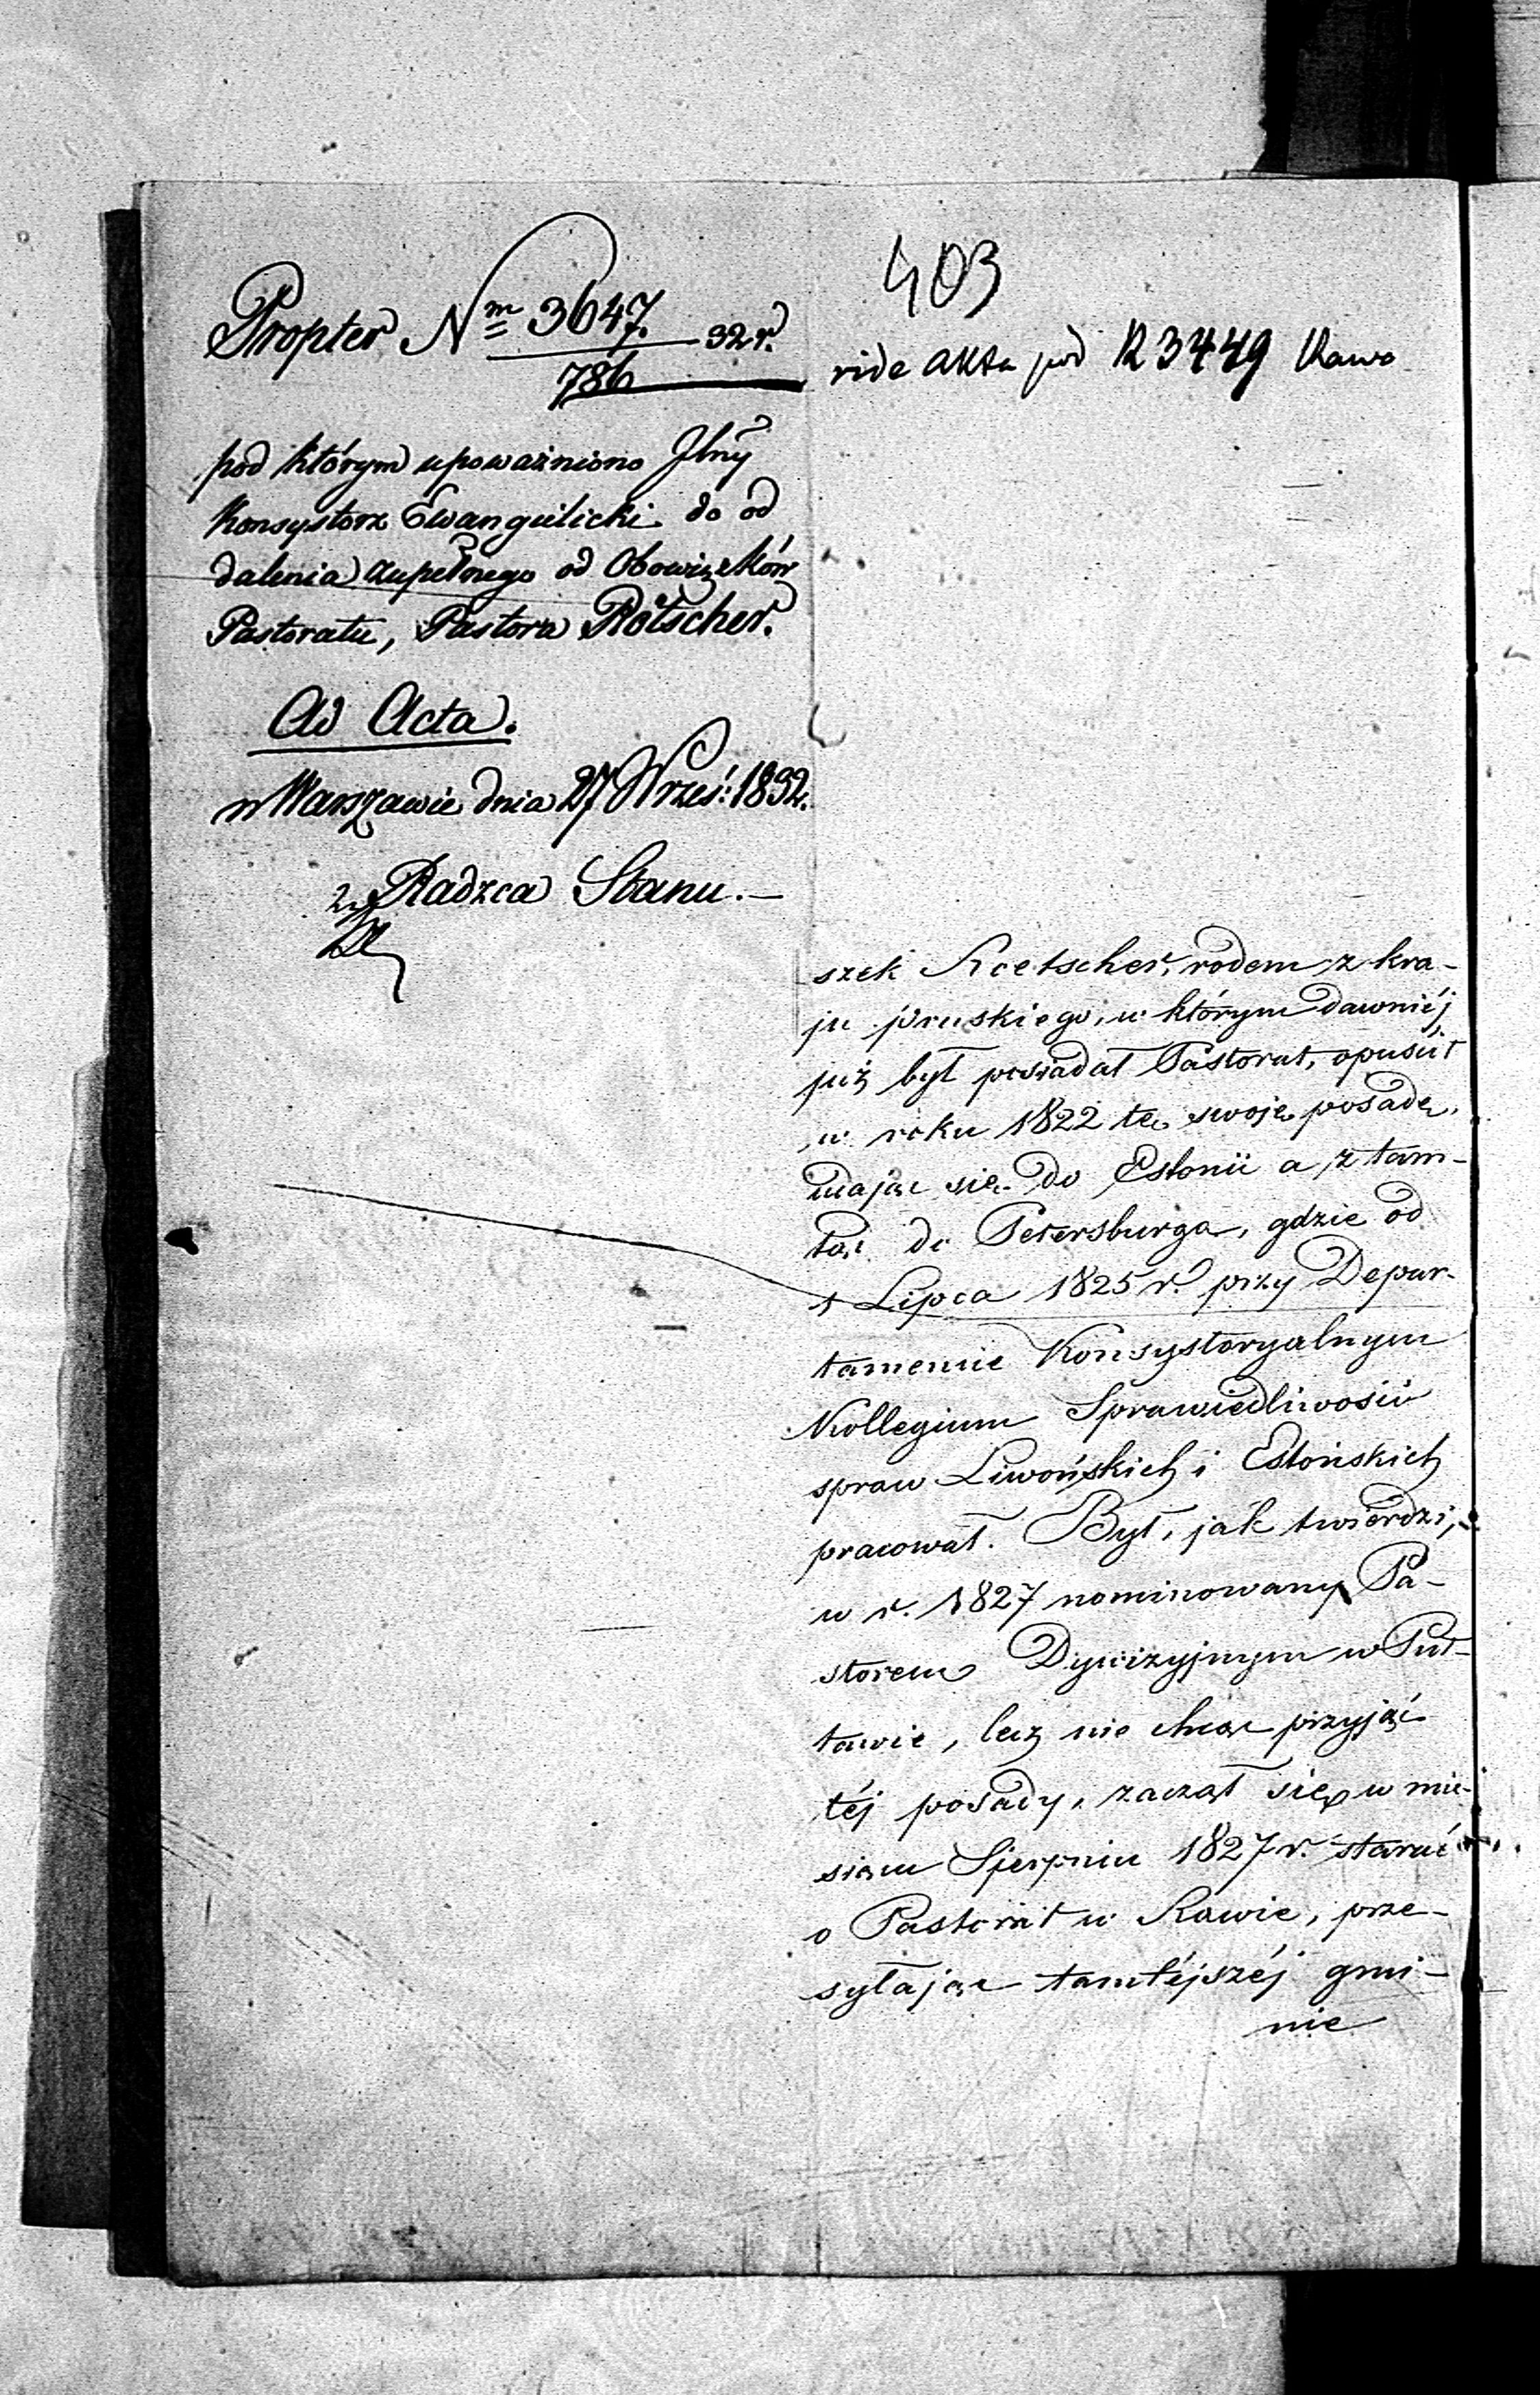 403
Propter Nm 3647. 32 r.
786
vide akta pod R 3449 Rawa
pod którym upoważniono Jlny
Konsystorz Ewangielicki do od
dalenia zupełnego od Obowiązków
Pastoratu, Pastora Rötscher.
Ad Acta.
w Warszawie dnia 27 Wrześ: 1832.
Radzca Stanu.—
szek Roetscher, rodem z kra-
ju pruskiego, w którym dawniéj
już był posiadał Pastorat, opuścił
w roku 1822 tę swoję posadę,
udając się do Estonii a z tam-
tąd do Petersburga, gdzie od
1 Lipca 1825 r. przy Depar-
tamencie Konsystoryalnym
Kollegium Sprawiedliwości
spraw Liwońskich i Estońskich
pracował. Był, jak twierdzi,
w r. 1827 nominowany Pa-
storem Dywizyjnym w Puł-
tawie, lecz nie chcąc przyjąć
téj posady, zaczął się w mie-
siącu Sierpniu 1827 r. starać
o Pastorat w Rawie, prze-
syłając tamtéjszéj gmi-
nie